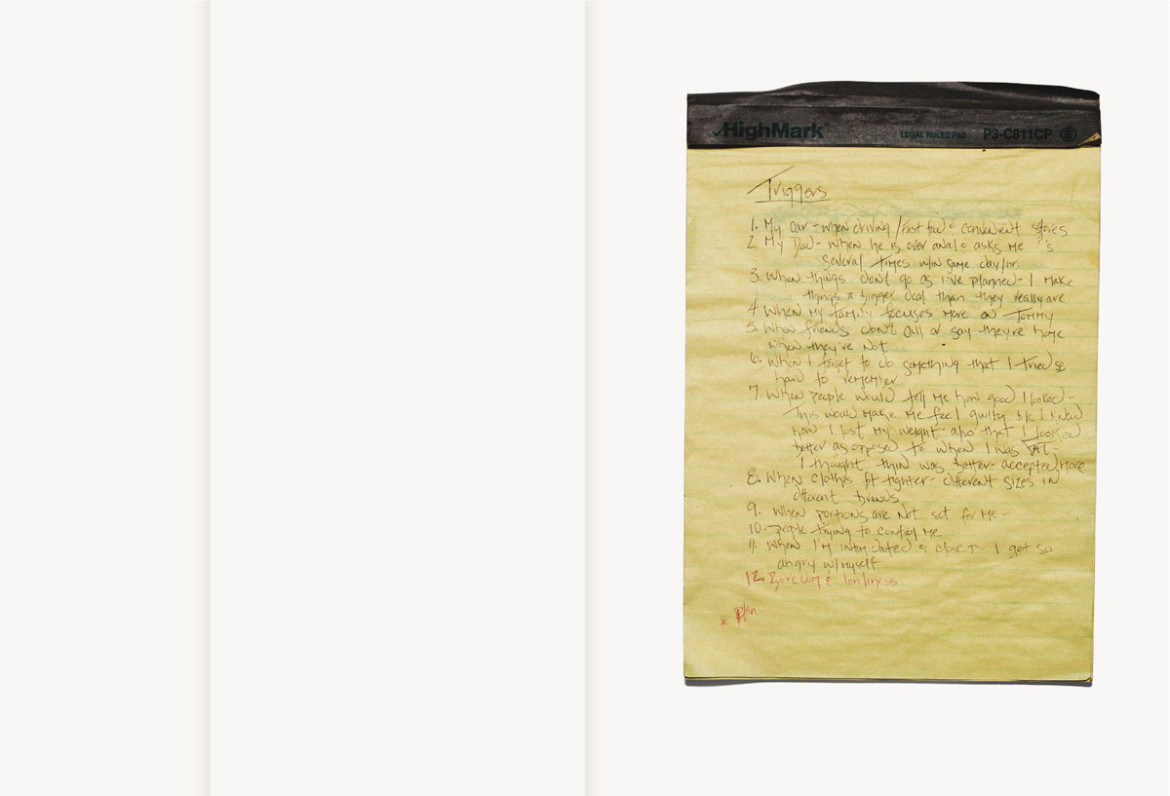 HighMark
LEGAL RULED PAD P3-C811CP
Triggers
1. My car - when driving / fast food & convenient stores
2. My Dad - when he is over anal & asks me ?'s
several times w/in same day/hr.
3. When things don't go as I've planned - I make
things a bigger deal than they really are
4. When my family focuses more on Tommy
5. When friends don't call or say they're home
when they're not
6. When I forget to do something that I tried so
hard to remember
7. When people would tell me how good I looked -
This would make me feel guilty b/c I knew
how I lost my weight - also that I looked
better as opposed to when I was fat -
I thought thin was better - accepted more
8. When clothes fit tighter - different sizes in
different brands
9. When portions are not set for me -
10. people trying to control me
11. When I'm intimidated & I get so
angry w/myself
12. Boredom & lonliness